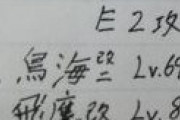 E2攻
鳥海改二 Lv.69
飛鷹改 Lv.8